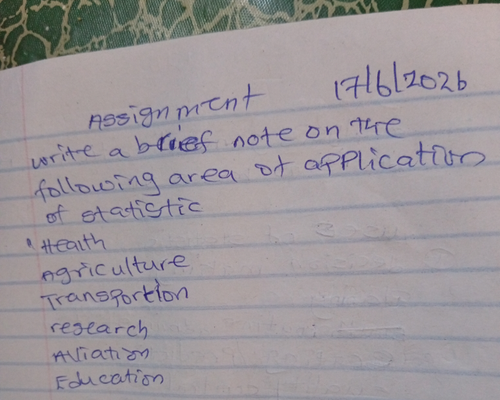 Assignment 17/6/2026
write a brief note on the
following area of application
of statistic
Health
Agriculture
Transportion
research
Aviation
Education